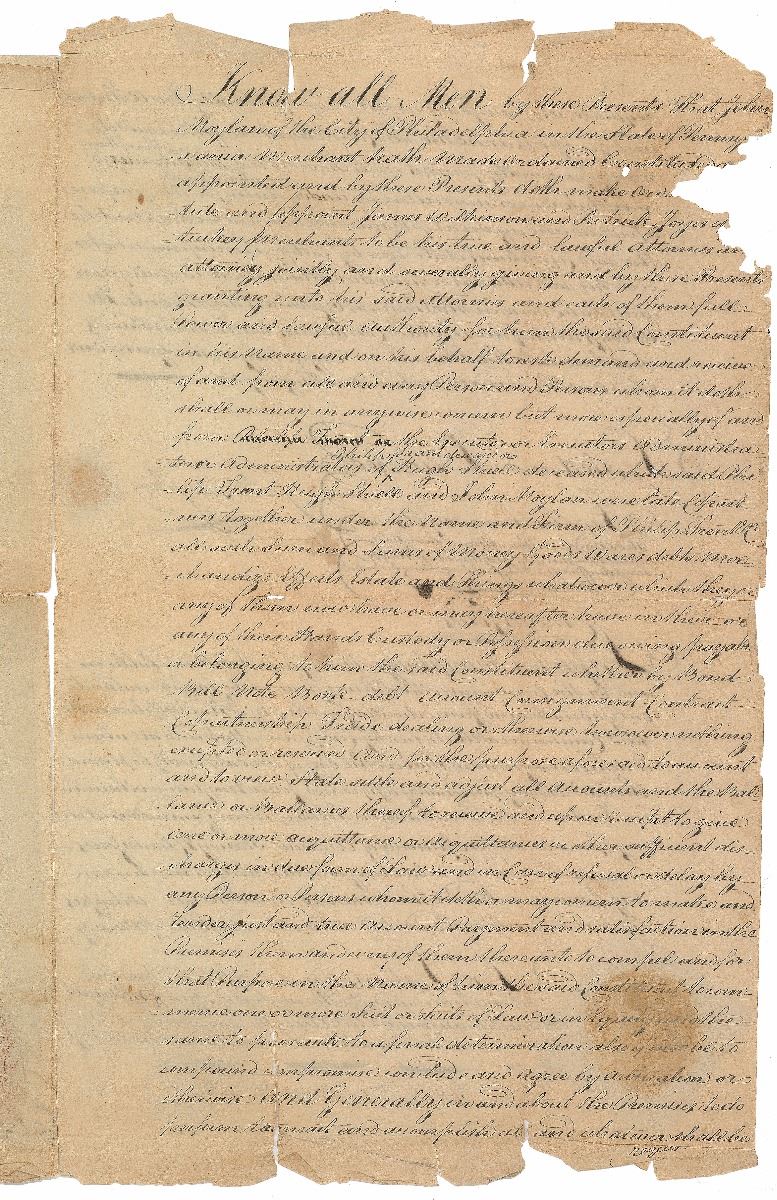 Know all Men by these Presents That John
Moylan of the City of Philadelphia in the State of Pennsy
vania Merchant hath made ordained Constituted
appointed and by these Presents doth make
tute and appoint James and Patrick
tuckey Merchants to be his true and lawful Attornies
attorney jointly and severally giving and by these Presents
granting unto his said Attornies and each of them full
Power and lawful authority for him the said Constituent
in his Name and on his behalf to ask demand and receive
of and from all and every Person and Persons whom it doth
shall or may in anywise concern but more especially of and
from the Executor or Executors Administra
tor or Administrators of Hugh Shiell deceased which said Phi
lip Hugh Shiell and John Moylan were late Copart
ners together under the Name and Firm of Philip &C
all such Sum and Sums of Money Goods Wares debts Mer
chandize Effects Estate and things whatsoever which they or
any of them now have or may hereafter have in their or
any of their Hands Custody or Possession due owing payable
or belonging to him the said Constituent whether by Bond
Bill Note Book debt account Consignment Contract
Copartnership Trade dealing or otherwise howsoever nothing
excepted or reserved and for the purpose aforesaid to account
and to view State settle and adjust all accounts and the Bal
lance or Ballances thereof to receive and upon receipt to give
one or more acquittance or acquittances or other sufficient dis
charges in due form of Law and in Case of refusal or delay by
any Person or Persons whom it doth or may concern to make and
render just and true account Payment and satisfaction in the
Premises them and every of them thereunto to compel and for
that Purpose in the Name of him the said Constituent to com
mence one or more Suit or Suits of Law or in Equity and the
same to prosecute to a final determination also
compound compromise conclude and agree by arbitration or
otherwise And Generally in and about the Premises to do
perform transact and accomplish all and whatever shall be